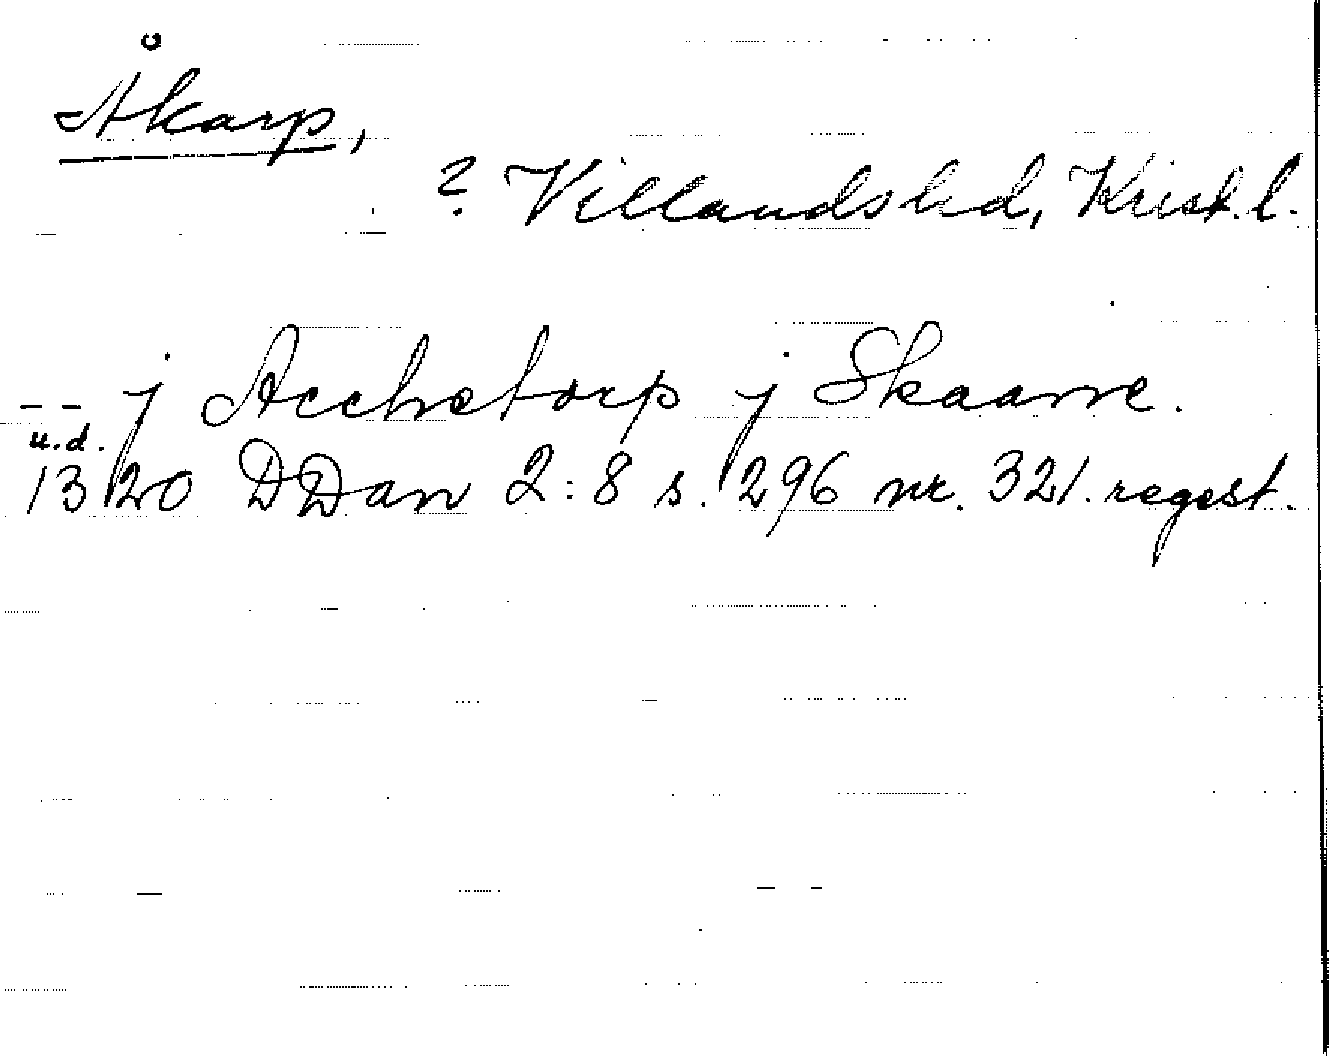 Åkarp,
? Villands hd, Krist. l.
-- j Acchetorp j Skaane.
u.d.
1320 DDan 2:8 s. 296 nr. 321. regest.